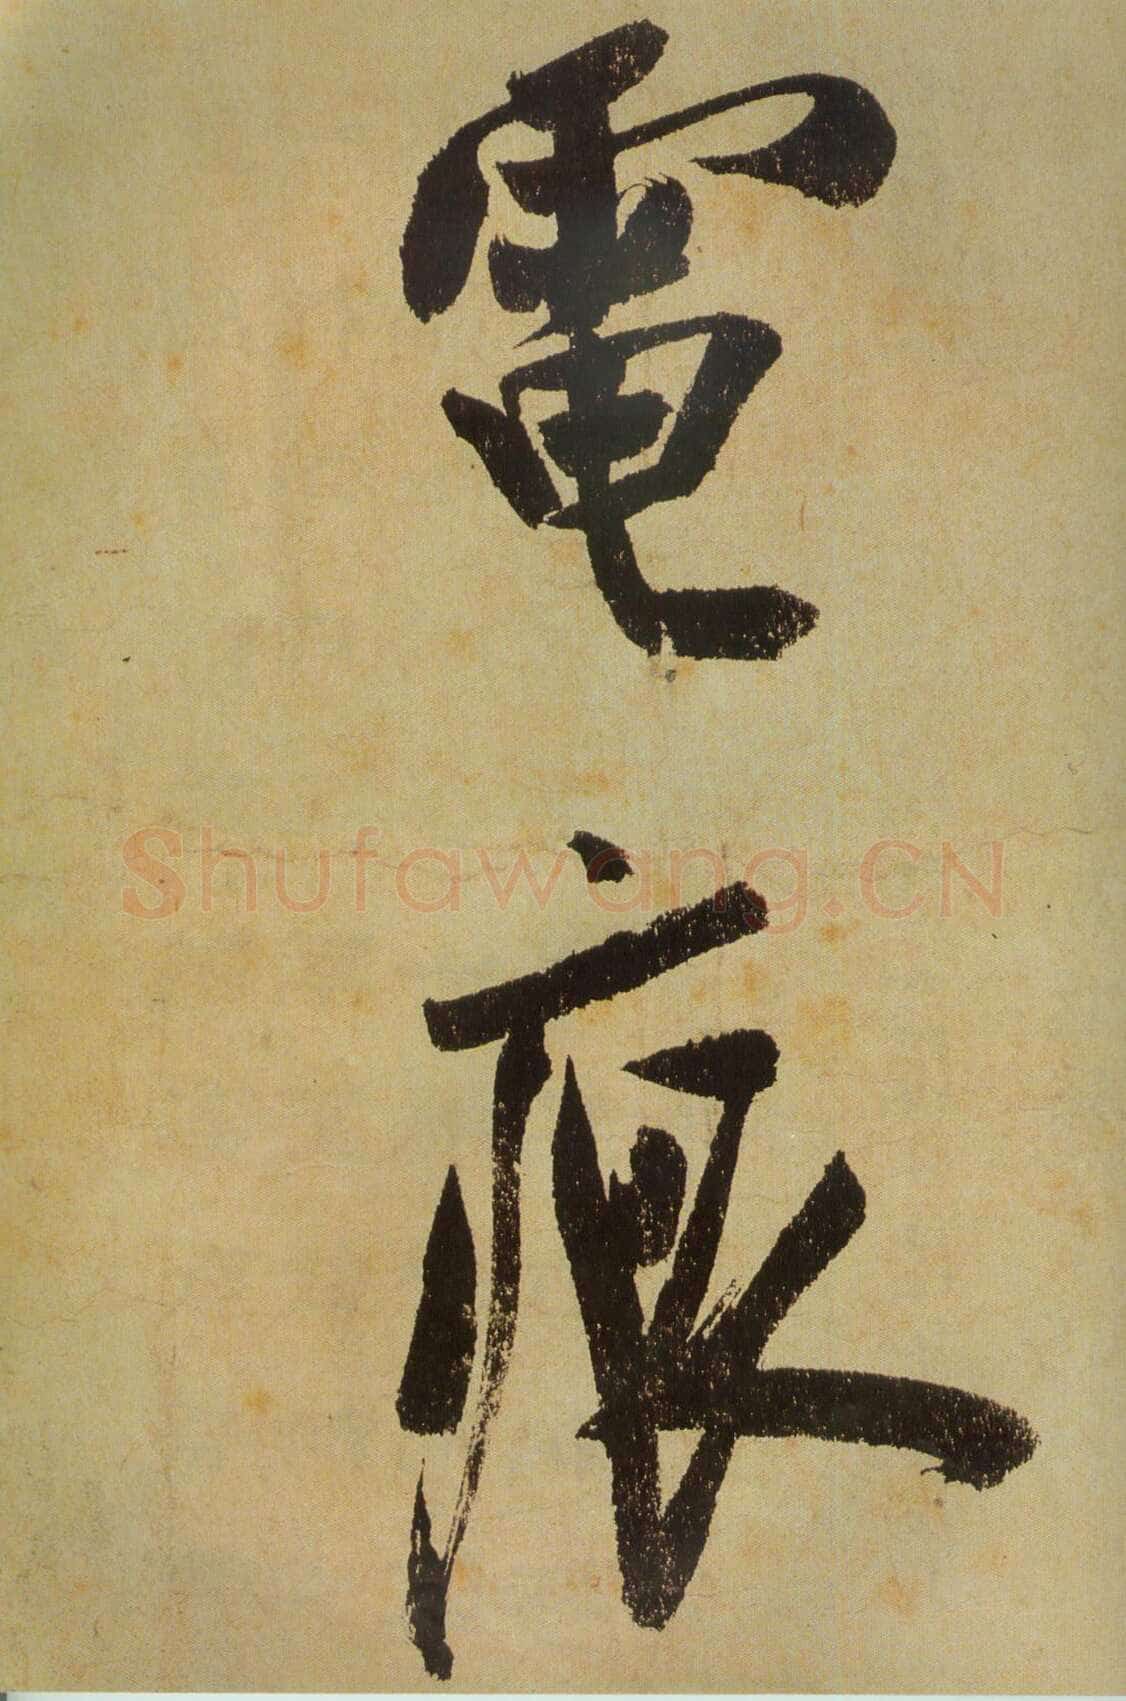 電痕
Shufawang.CN